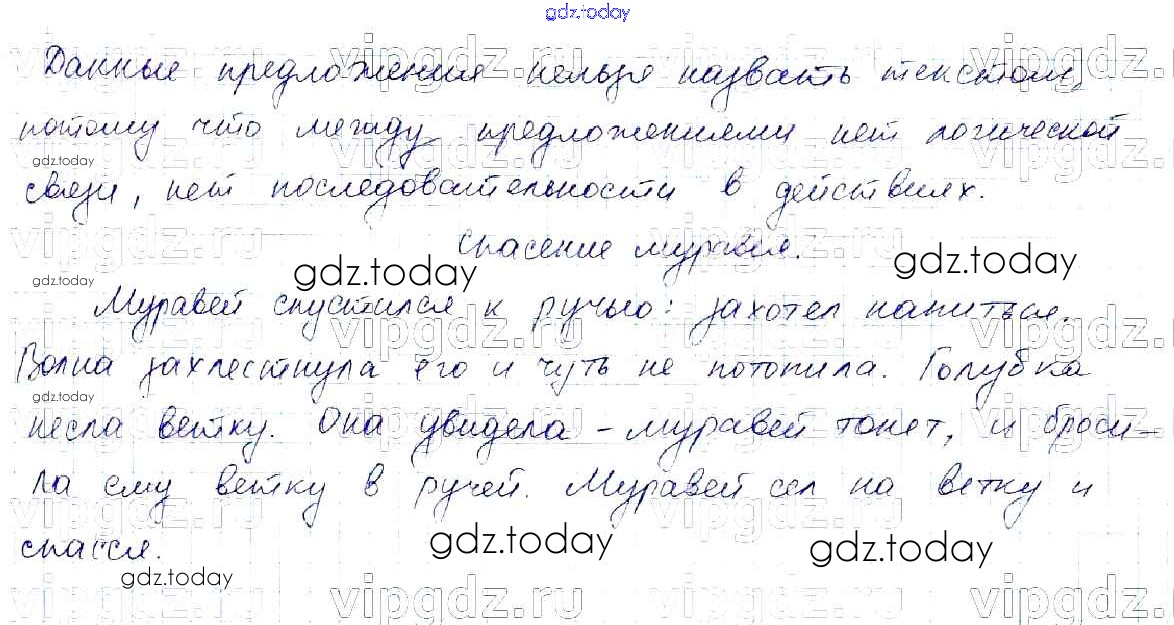 gdz.today
Данные предложения нельзя назвать текстом,
потому что между предложениями нет логической
gdz.today
связи, нет последовательности в действиях.
Спасение муравья.
gdz.today gdz.today gdz.today
Муравей спустился к ручью: захотел напиться.
Волна захлестнула его и чуть не потопила. Голубка
gdz.today
несла ветку. Она увидела – муравей тонет, и броси-
ла ему ветку в ручей. Муравей сел на ветку и
спасся.
gdz.today gdz.today
gdz.today
vipgdz.ru